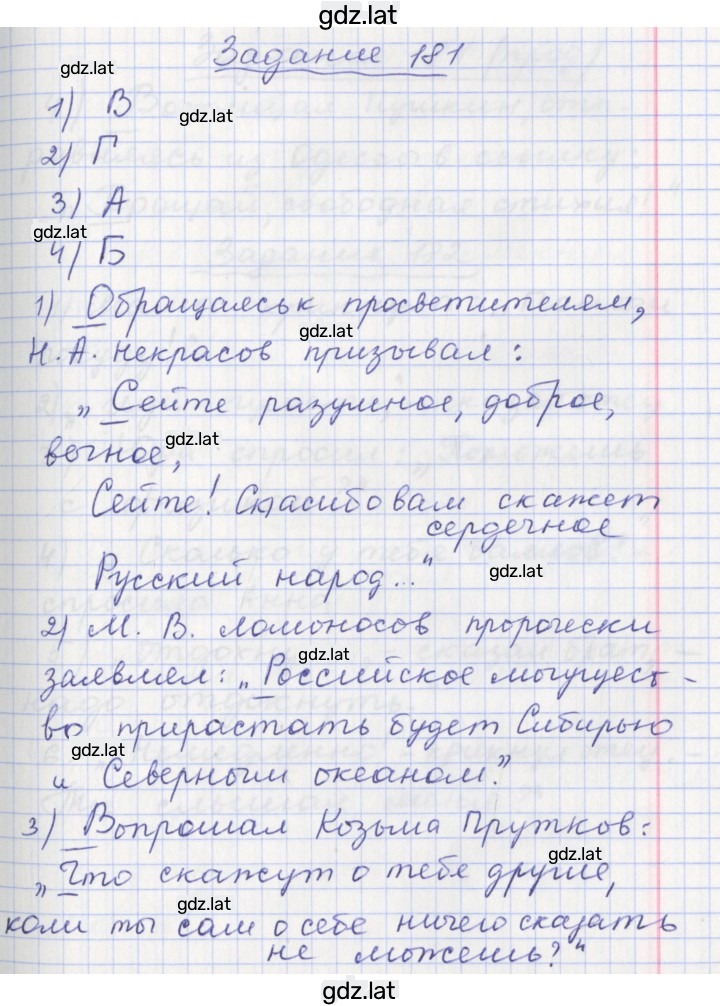 gdz.lat
Задание 181
gdz.lat
1) В
gdz.lat
2) Г
3) А
gdz.lat
4) Б
1) Обращаясь к просветителям,
gdz.lat
Н. А. Некрасов призывал:
„Сейте разумное, доброе,
gdz.lat
вечное,
Сейте! Спасибо вам скажет
сердечное
Русский народ..."
gdz.lat
2) М. В. Ломоносов пророчески
gdz.lat
заявлял: „Российское могущест-
во прирастать будет Сибирью
gdz.lat
и Северным океаном."
3) Вопрошал Козьма Прутков:
gdz.lat
„Что скажут о тебе другие,
gdz.lat
коли ты сам о себе ничего сказать
не можешь?"
gdz.lat